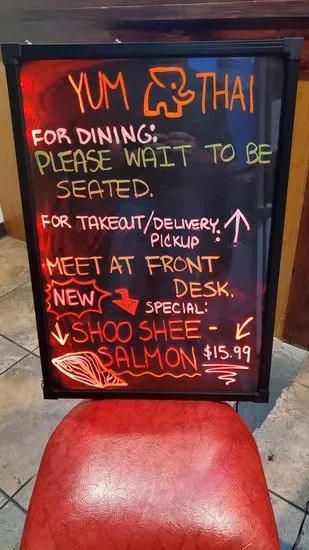 YUM THAI
FOR DINING:
PLEASE WAIT TO BE
SEATED.
FOR TAKEOUT/DELIVERY
PICKUP :
MEET AT FRONT
DESK.
NEW
SPECIAL:
SHOO SHEE -
SALMON $15.99